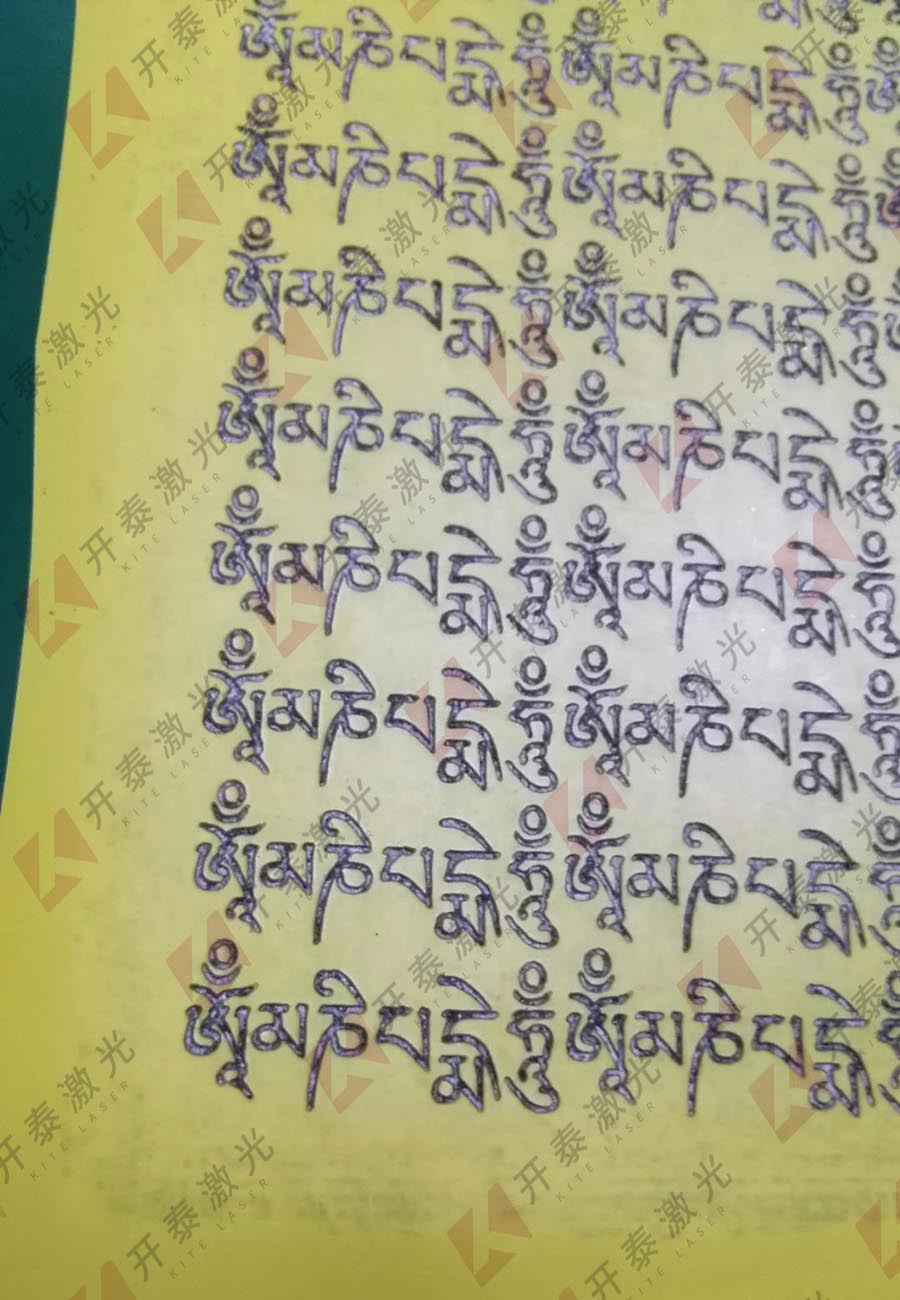 ༀམཎིཔདྨེཧཱུྃༀམཎིཔདྨེཧཱུྃ
ༀམཎིཔདྨེཧཱུྃༀམཎིཔདྨེཧཱུྃ
ༀམཎིཔདྨེཧཱུྃༀམཎིཔདྨེཧཱུྃ
ༀམཎིཔདྨེཧཱུྃༀམཎིཔདྨེཧཱུྃ
ༀམཎིཔདྨེཧཱུྃༀམཎིཔདྨེཧཱུྃ
ༀམཎིཔདྨེཧཱུྃༀམཎིཔདྨེ
ༀམཎིཔདྨེཧཱུྃༀམཎིཔདྨེ
ༀམཎིཔདྨེཧཱུྃༀམཎིཔདྨེ
开泰激光
KITE LASER